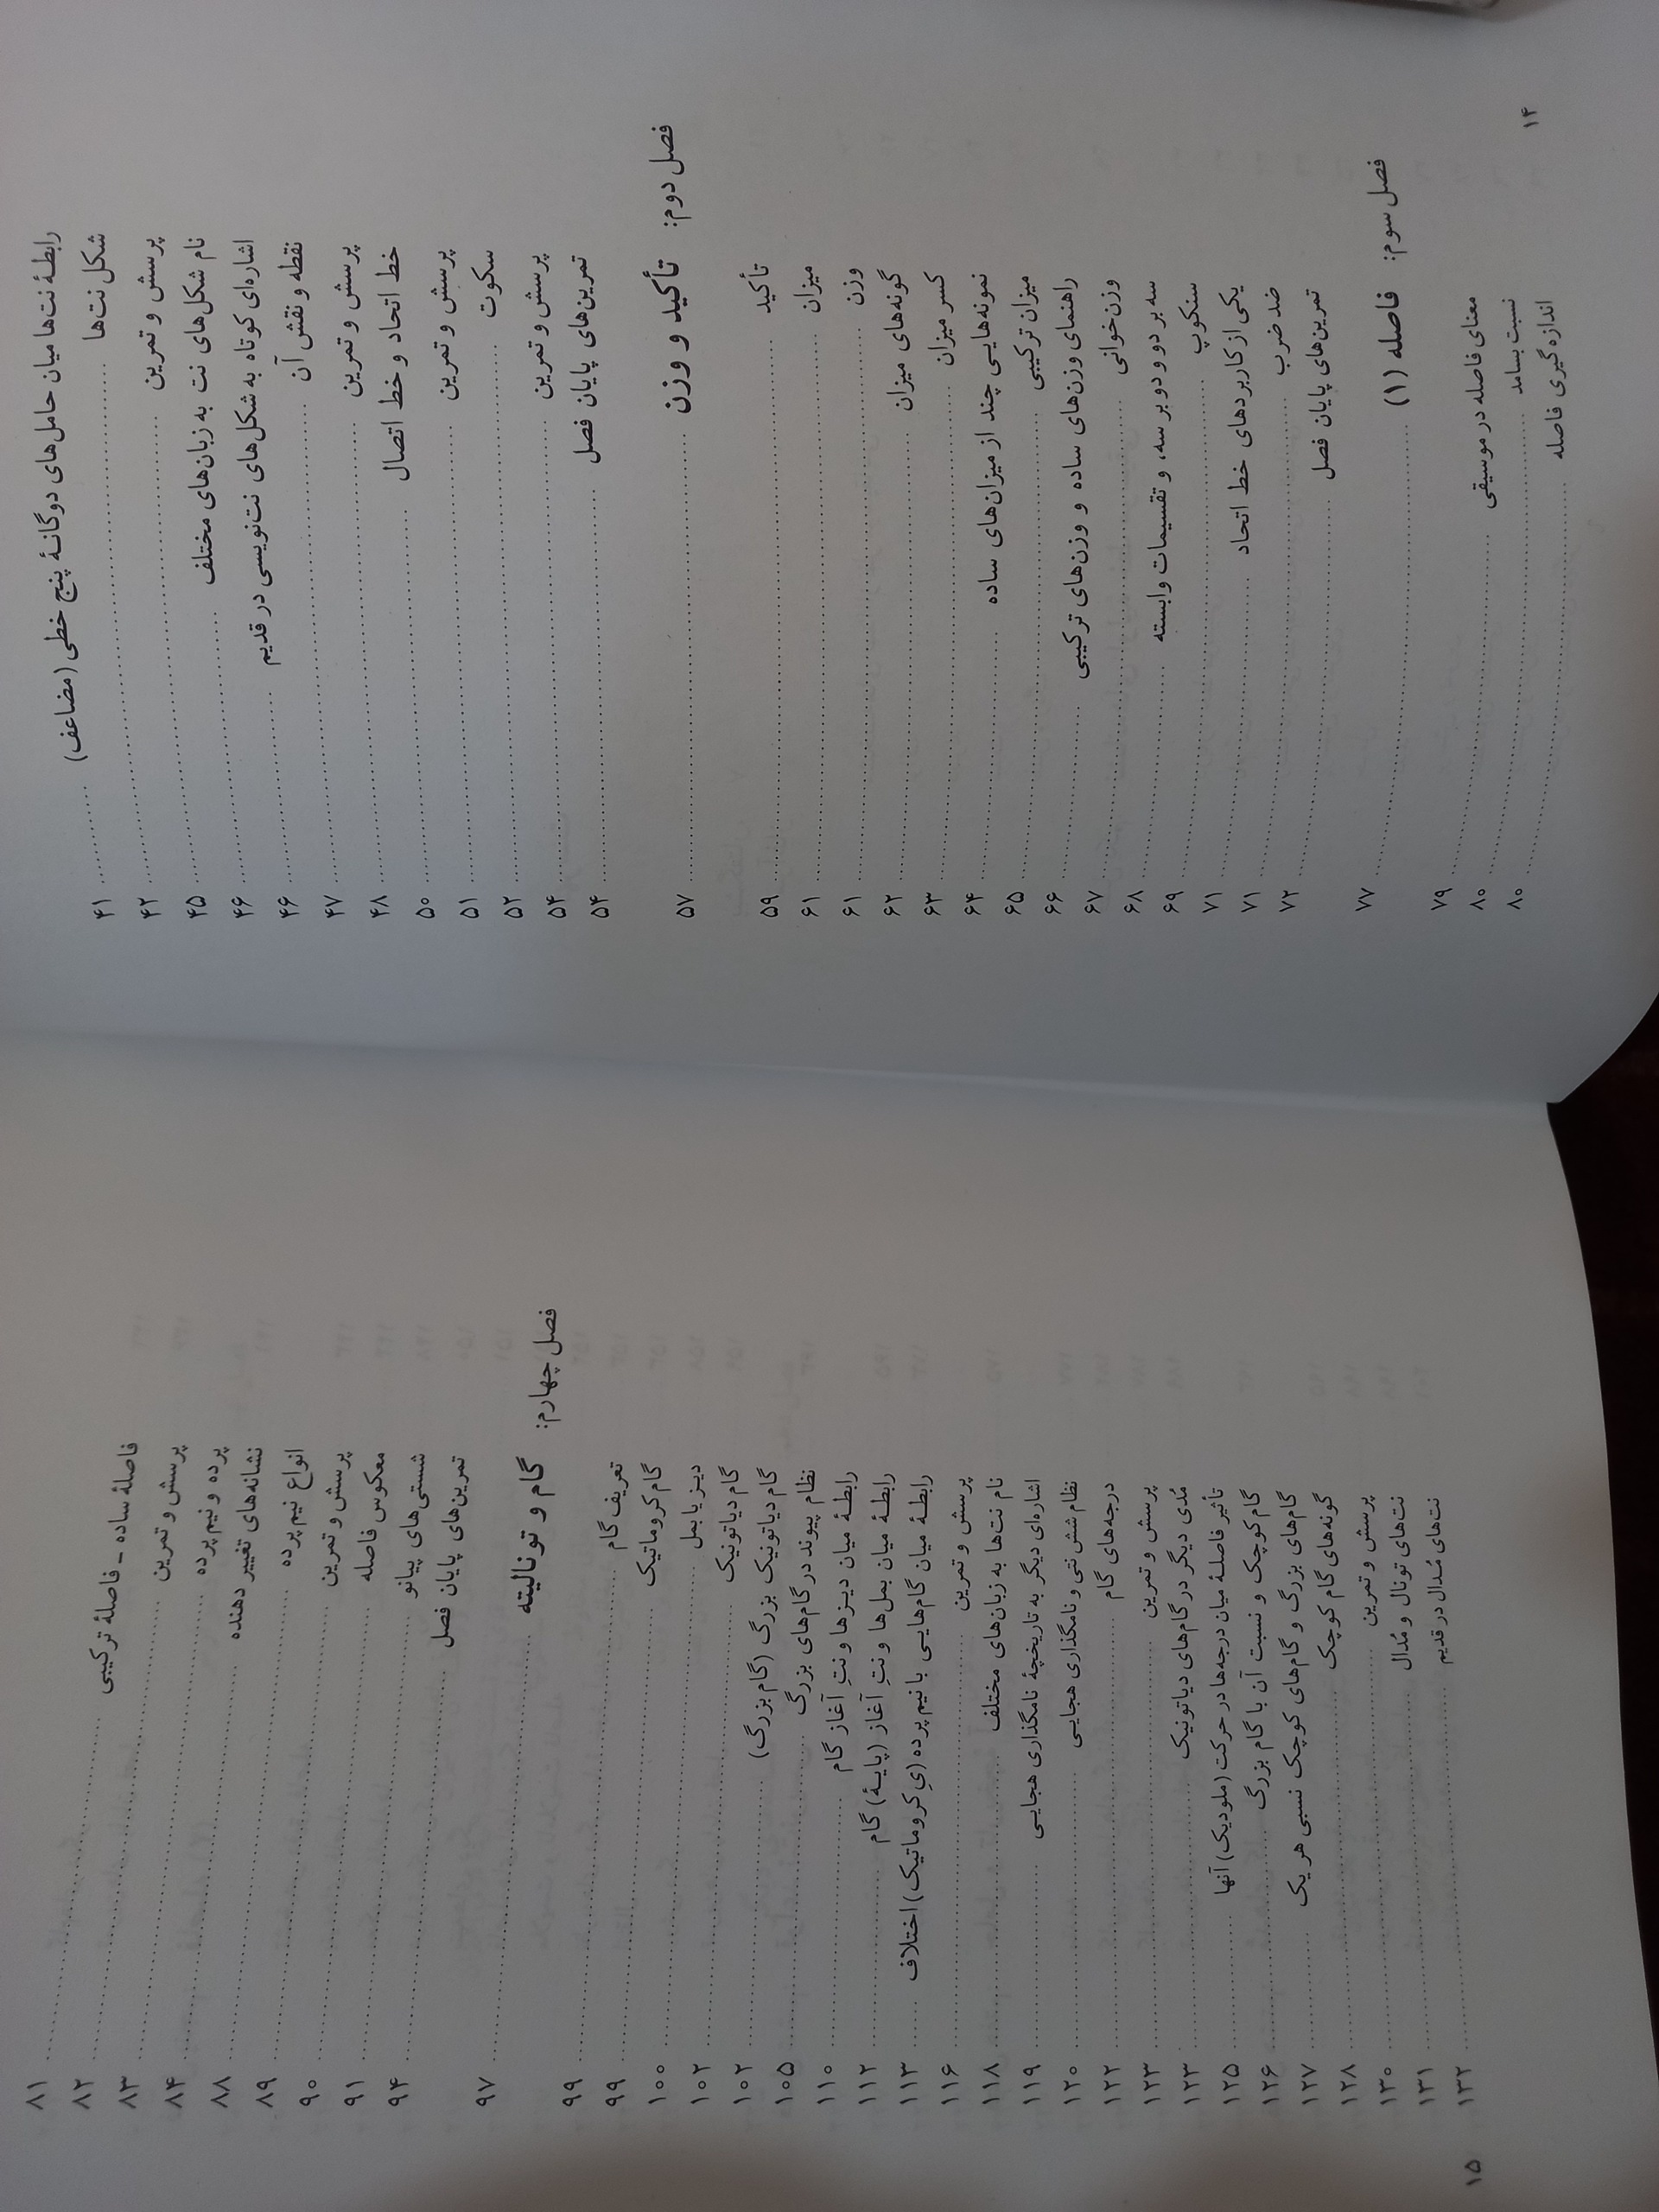 رابطهٔ نت‌ها میان حامل‌های دوگانهٔ پنج خطی (مضاعف) ........ ۴۱
شکل نت‌ها ........ ۴۲
پرسش و تمرین ........ ۴۵
نام شکل‌های نت به زبان‌های مختلف ........ ۴۶
اشاره‌ای کوتاه به شکل‌های نت‌نویسی در قدیم ........ ۴۶
نقطه و نقش آن ........ ۴۷
پرسش و تمرین ........ ۴۸
خط اتحاد و خط اتصال ........ ۵۰
پرسش و تمرین ........ ۵۱
سکوت ........ ۵۲
پرسش و تمرین ........ ۵۴
تمرین‌های پایان فصل ........ ۵۴
فصل دوم: تأکید و وزن ........ ۵۷
تأکید ........ ۵۹
میزان ........ ۶۱
وزن ........ ۶۱
گونه‌های میزان ........ ۶۲
کسر میزان ........ ۶۳
نمونه‌هایی چند از میزان‌های ساده ........ ۶۴
میزان ترکیبی ........ ۶۵
راهنمای وزن‌های ساده و وزن‌های ترکیبی ........ ۶۶
وزن‌خوانی ........ ۶۷
سه بر دو و دو بر سه، و تقسیمات وابسته ........ ۶۸
سنکوپ ........ ۶۹
یکی از کاربردهای خط اتحاد ........ ۷۱
ضد ضرب ........ ۷۱
تمرین‌های پایان فصل ........ ۷۲
فصل سوم: فاصله (۱) ........ ۷۷
معنای فاصله در موسیقی ........ ۷۹
نسبت بسامد ........ ۸۰
اندازه‌گیری فاصله ........ ۸۰
۱۴
فاصلهٔ ساده ـ فاصلهٔ ترکیبی ........ ۸۱
پرسش و تمرین ........ ۸۲
پرده و نیم‌پرده ........ ۸۳
نشانه‌های تغییر دهنده ........ ۸۴
انواع نیم‌پرده ........ ۸۸
پرسش و تمرین ........ ۸۹
معکوس فاصله ........ ۹۰
شستی‌های پیانو ........ ۹۱
تمرین‌های پایان فصل ........ ۹۴
فصل چهارم: گام و تونالیته ........ ۹۷
تعریف گام ........ ۹۹
گام کروماتیک ........ ۹۹
دیز یا بمل ........ ۱۰۰
گام دیاتونیک ........ ۱۰۲
گام دیاتونیک بزرگ (گام بزرگ) ........ ۱۰۲
نظام پیوند در گام‌های بزرگ ........ ۱۰۵
رابطهٔ میان دیزها و نتِ آغاز گام ........ ۱۱۰
رابطهٔ میان بمل‌ها و نتِ آغاز (پایهٔ) گام ........ ۱۱۲
رابطهٔ میان گام‌هایی با نیم پرده (یِ کروماتیک) اختلاف ........ ۱۱۳
پرسش و تمرین ........ ۱۱۶
نام نت‌ها به زبان‌های مختلف ........ ۱۱۸
اشاره‌ای دیگر به تاریخچهٔ نامگذاری هجایی ........ ۱۱۹
نظام شش نتی و نامگذاری هجایی ........ ۱۲۰
درجه‌های گام ........ ۱۲۲
پرسش و تمرین ........ ۱۲۳
مُدی دیگر در گام‌های دیاتونیک ........ ۱۲۳
تأثیر فاصلهٔ میان درجه‌ها در حرکت (ملودیک) آنها ........ ۱۲۵
گام کوچک و نسبت آن با گام بزرگ ........ ۱۲۶
گام‌های بزرگ و گام‌های کوچک نسبی هر یک ........ ۱۲۷
گونه‌های گام کوچک ........ ۱۲۸
پرسش و تمرین ........ ۱۳۰
نت‌های تونال و مُدال ........ ۱۳۱
نت‌های مُدال در قدیم ........ ۱۳۲
۱۵